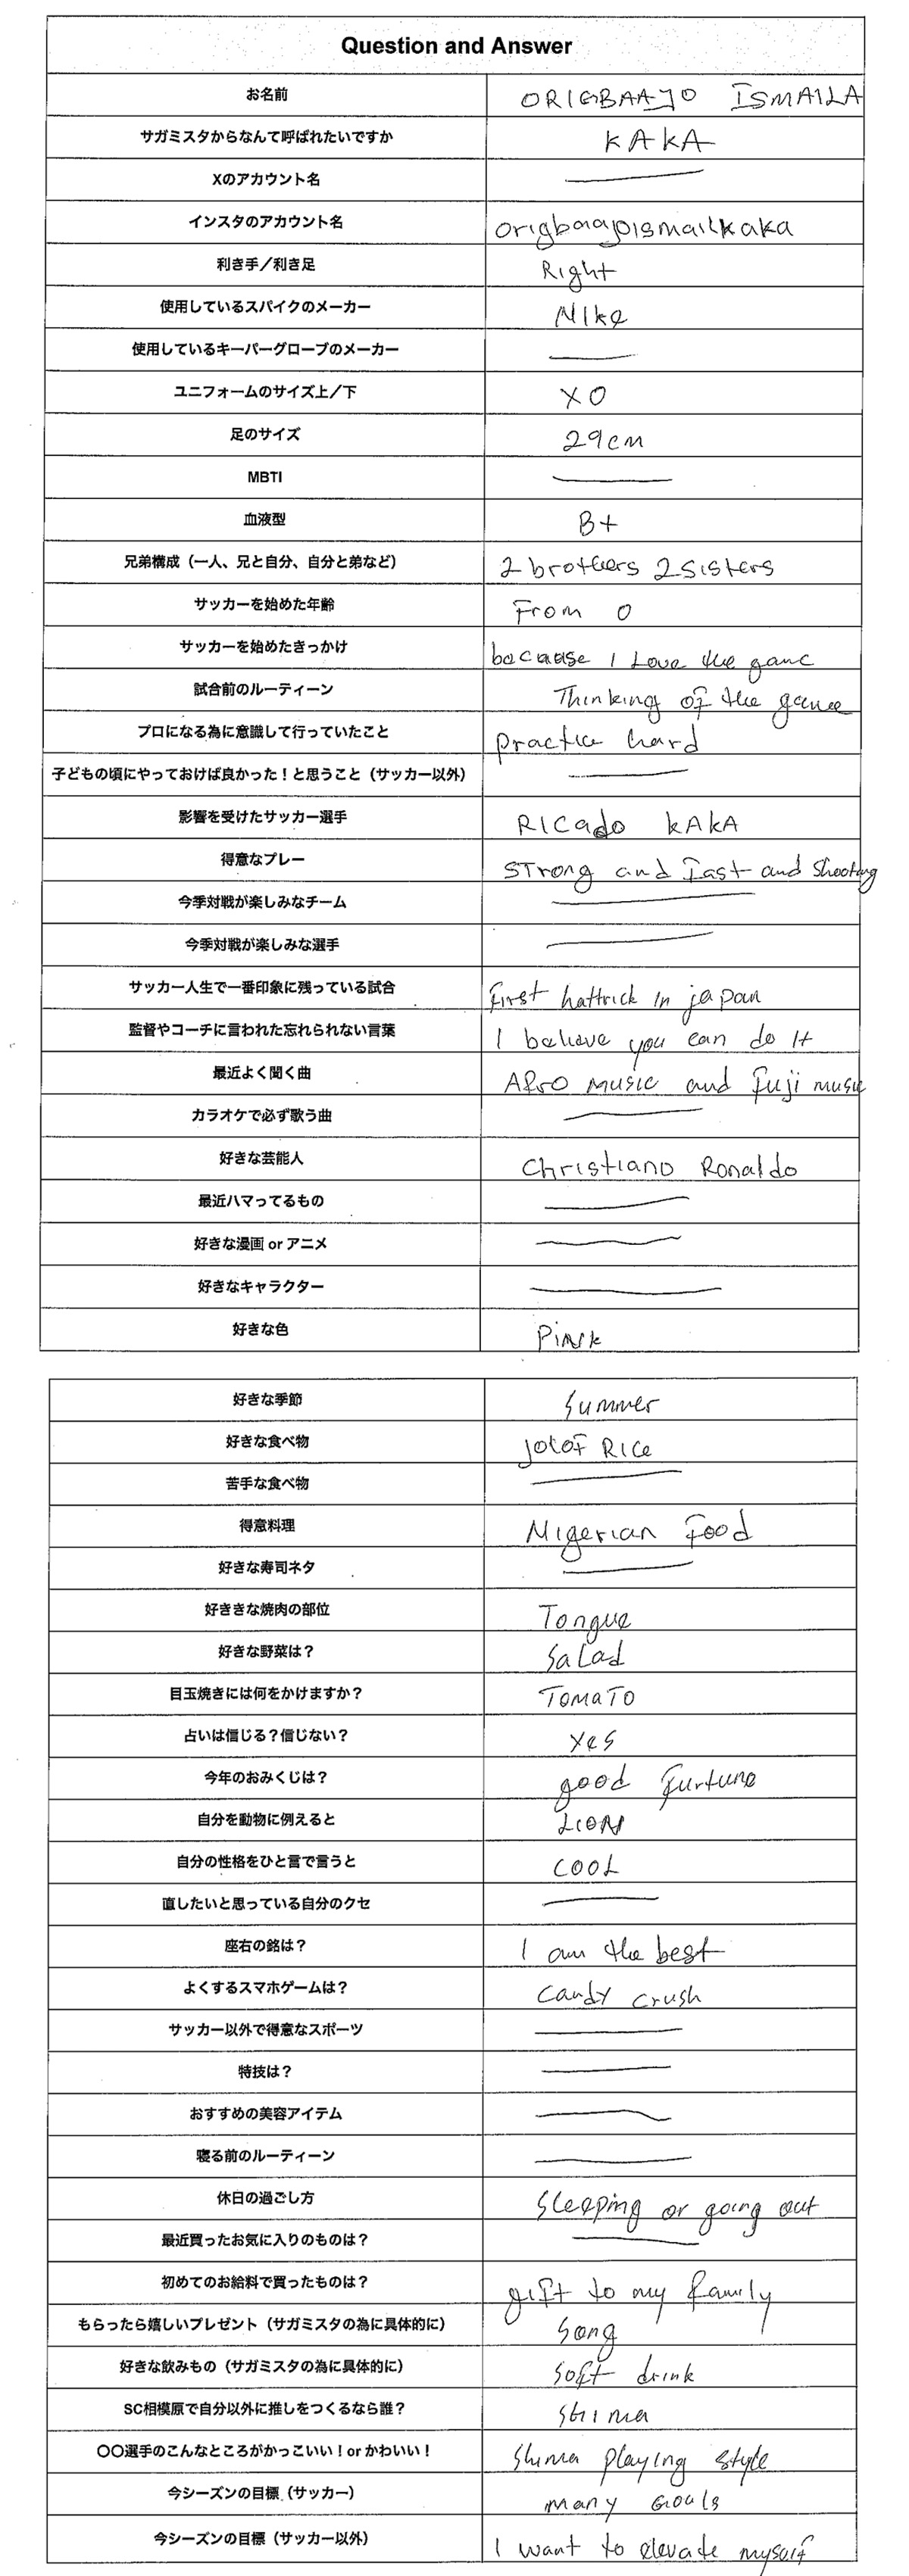 Question and Answer
お名前 ORIGBAAJO ISMAILA
サガミスタからなんて呼ばれたいですか KAKA
Xのアカウント名
インスタのアカウント名 origbaajoismailkaka
利き手/利き足 Right
使用しているスパイクのメーカー NIke
使用しているキーパーグローブのメーカー
ユニフォームのサイズ上/下 XO
足のサイズ 29cm
MBTI
血液型 B+
兄弟構成（一人、兄と自分、自分と弟など） 2 brothers 2 sisters
サッカーを始めた年齢 From 0
サッカーを始めたきっかけ because I Love the game
試合前のルーティーン Thinking of the game
プロになる為に意識して行っていたこと practice hard
子どもの頃にやっておけば良かった！と思うこと（サッカー以外）
影響を受けたサッカー選手 RICado KAKA
得意なプレー STrong and Fast and Shooting
今季対戦が楽しみなチーム
今季対戦が楽しみな選手
サッカー人生で一番印象に残っている試合 first hattrick In japan
監督やコーチに言われた忘れられない言葉 I believe you can do It
最近よく聞く曲 AfrO MUSIC and Fuji music
カラオケで必ず歌う曲
好きな芸能人 Christiano Ronaldo
最近ハマってるもの
好きな漫画 or アニメ
好きなキャラクター
好きな色 Pink
好きな季節 Summer
好きな食べ物 jolof Rice
苦手な食べ物
得意料理 NIgerian Food
好きな寿司ネタ
好ききな焼肉の部位 Tongue
好きな野菜は？ SaLad
目玉焼きには何をかけますか？ TOMATO
占いは信じる？信じない？ Yes
今年のおみくじは？ good Furtune
自分を動物に例えると LION
自分の性格をひと言で言うと COOL
直したいと思っている自分のクセ
座右の銘は？ I am the best
よくするスマホゲームは？ Candy Crush
サッカー以外で得意なスポーツ
特技は？
おすすめの美容アイテム
寝る前のルーティーン
休日の過ごし方 Sleeping or going out
最近買ったお気に入りのものは？
初めてのお給料で買ったものは？ gift to my family
もらったら嬉しいプレゼント（サガミスタの為に具体的に） Song
好きな飲みもの（サガミスタの為に具体的に） Soft drink
SC相模原で自分以外に推しをつくるなら誰？ Shima
〇〇選手のこんなところがかっこいい！or かわいい！ Shima playing style
今シーズンの目標（サッカー） many Goals
今シーズンの目標（サッカー以外） I want to elevate myself